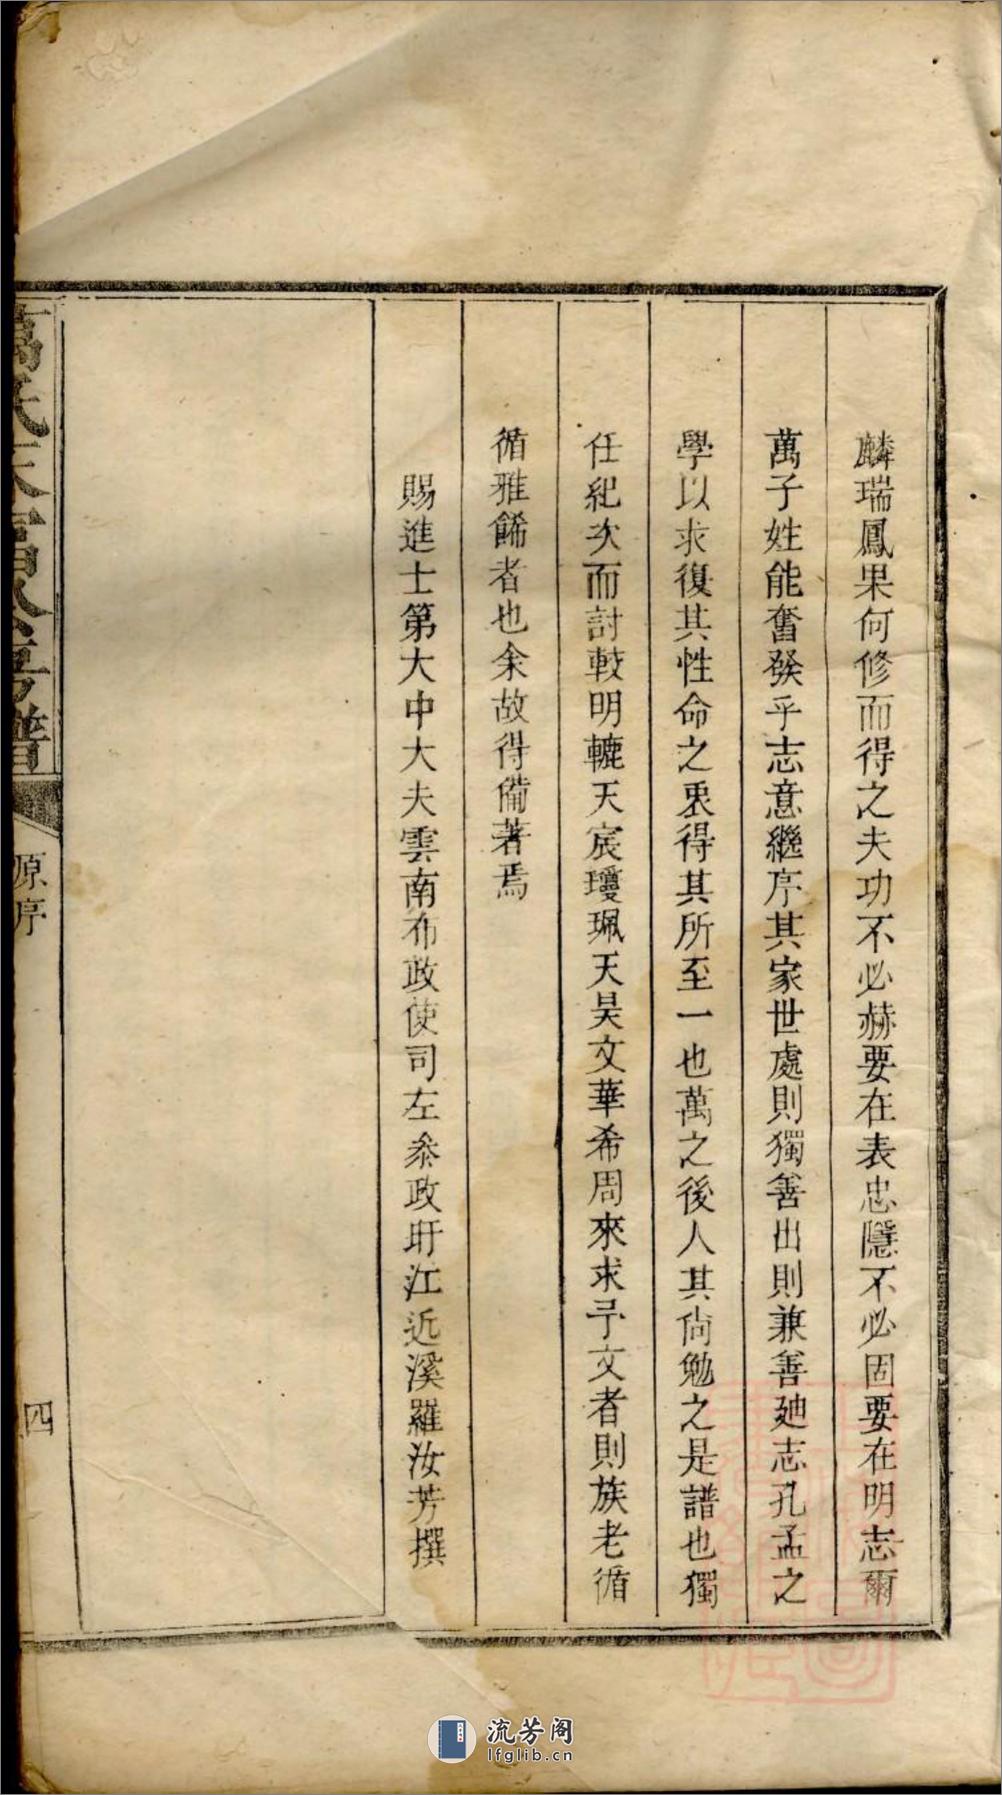 麟瑞鳳果何修而得之夫功不必赫要在表忠隱不必固要在明志爾
萬子姓能奮發乎志意繼序其家世處則獨善出則兼善廸志孔孟之
學以求復其性命之衷得其所至一也萬之後人其尙勉之是譜也獨
任紀次而討較明轆天宸瓊珮天昊文華希周來求予文者則族老循
循雅飭者也余故得備著焉
賜進士第大中大夫雲南布政使司左叅政盱江近溪羅汝芳撰
萬氏天富公房譜
原序
四
流芳阁
lfglib.cn